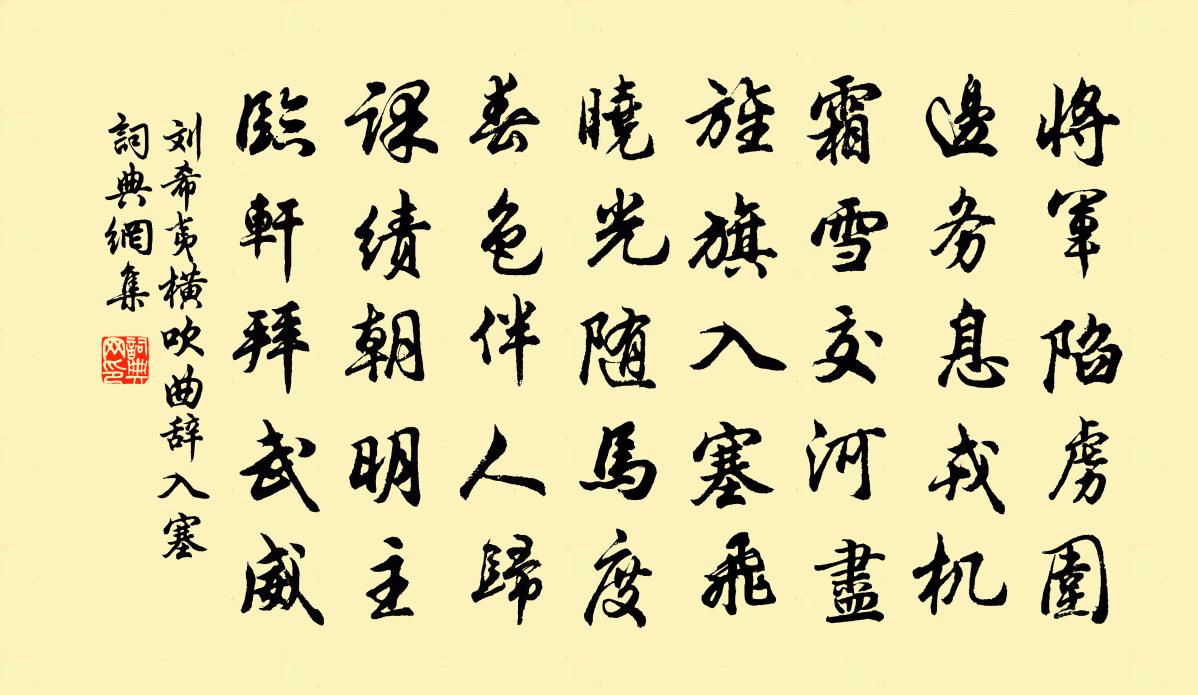 將軍陷虏圍
邊务息戎机
霜雪交河盡
旌旗入塞飛
曉光随馬度
春色伴人歸
課績朝明主
臨軒拜武威
刘希夷橫吹曲辞入塞
詞典網集
詞典网印